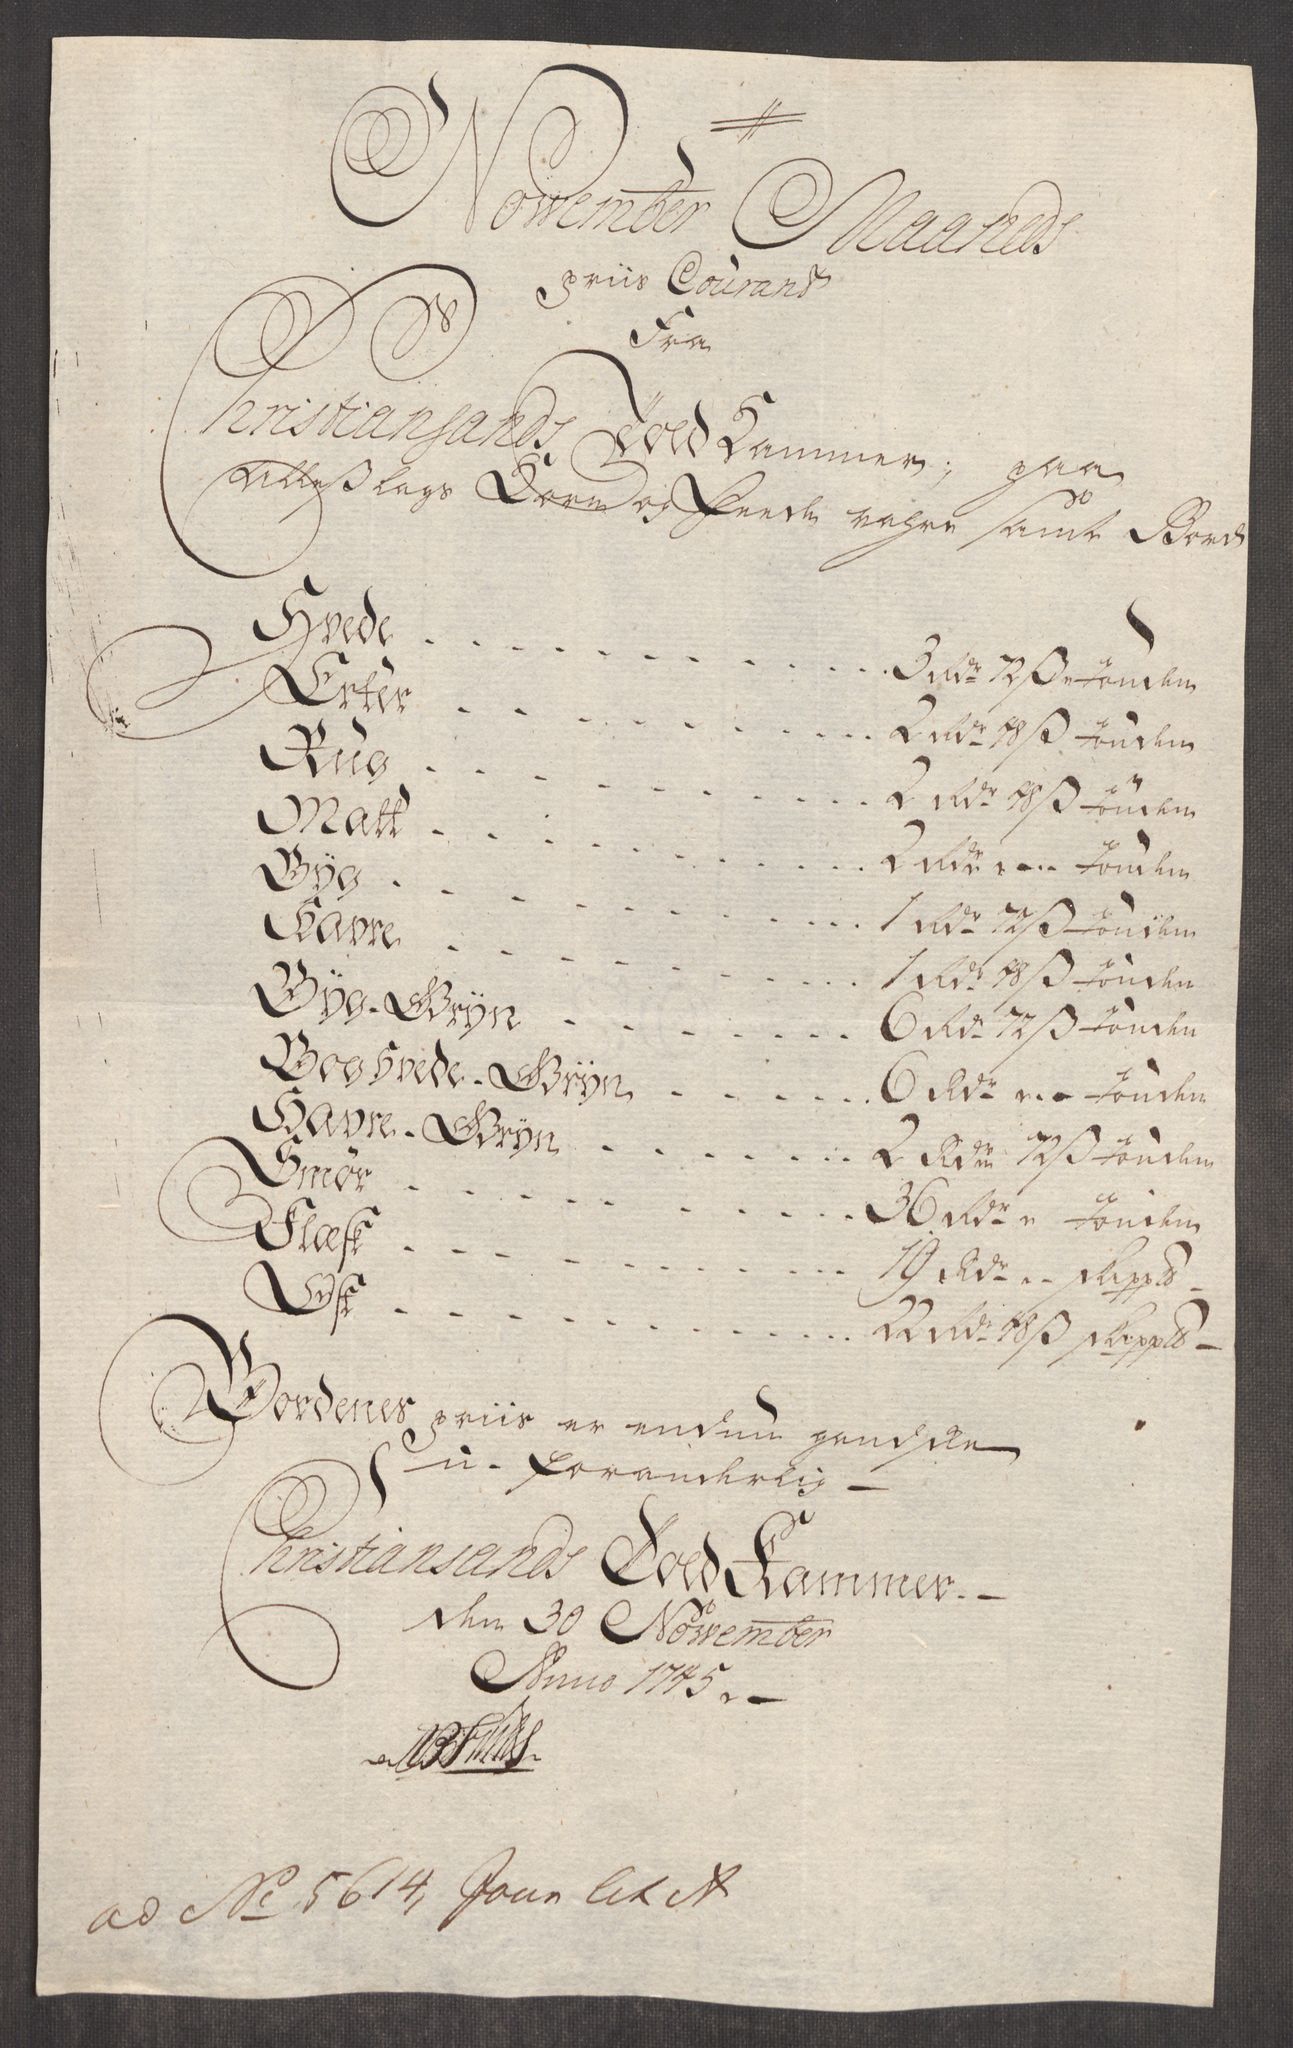 November Maaneds
priis Courant
Fra
Christiansands Told Kammer, paa
alleslags Korn og Feede vahre samt Bord
Hvede . . . . . . . . . . 3 Rdr 72 ß Tønden
Erter . . . . . . . . . . 2 Rdr 48 ß Tønden
Rug . . . . . . . . . . 2 Rdr 48 ß Tønden
Malt . . . . . . . . . . 2 Rdr " - " Tønden
Byg . . . . . . . . . . 1 Rdr 72 ß Tønden
Havre . . . . . . . . . . 1 Rdr 48 ß Tønden
Byg-Gryn . . . . . . . 6 Rdr 72 ß Tønden
Boghvede-Gryn . . . . . . 6 Rdr " - " Tønden
Havre-Gryn . . . . . . . 2 Rdr 72 ß Tønden
Smør . . . . . . . . . . 36 Rdr " Tønden
Flæsk . . . . . . . . . . 19 Rdr " - skipp℔ -
Tysk . . . . . . . . . . 22 Rdr 48 ß skipp℔ -
Bordenes priis er endnu gandske
u-foranderlig -
Christiansands Told Kammer. -
den 30 November
Anno 1745. -
ad No 5614, Jour lit A